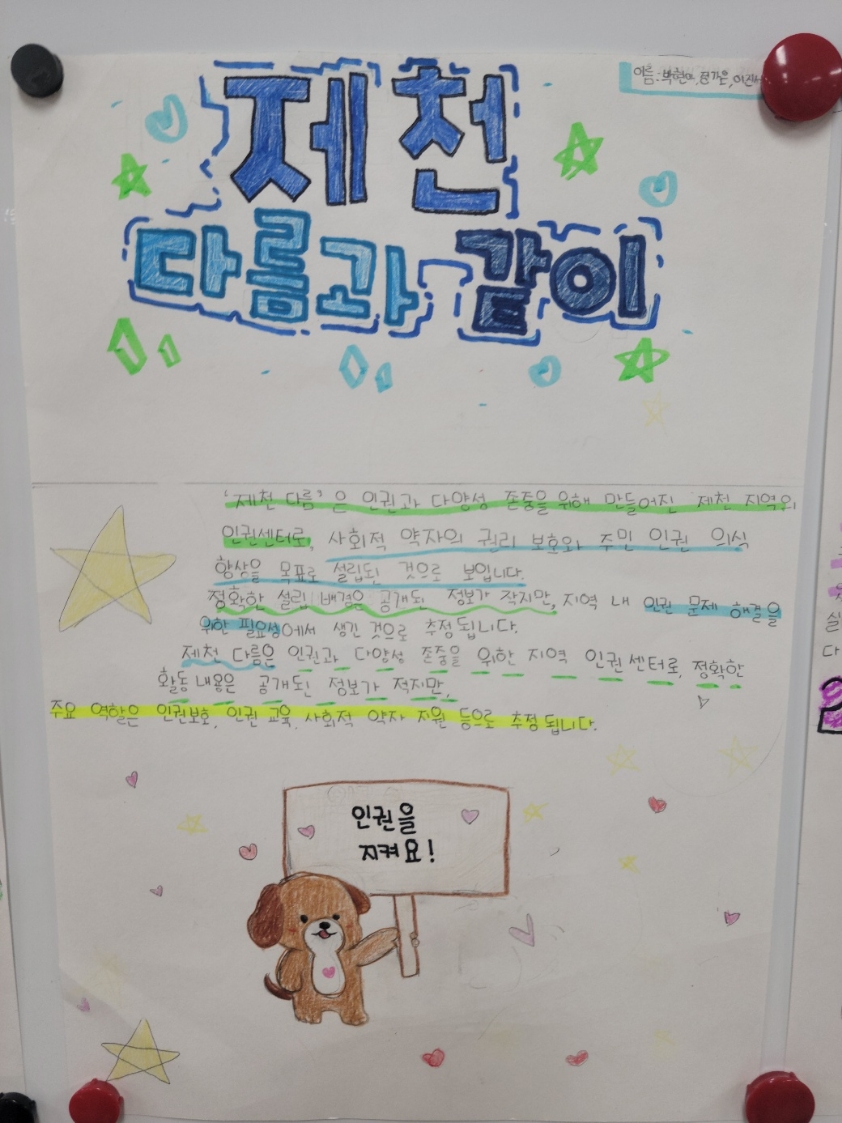 제천
다름과 같이
이름:
'제천 다름'은 인권과 다양성 존중을 위해 만들어진 제천 지역의
인권센터로, 사회적 약자의 권리 보호와 주민 인권 의식
향상을 목표로 설립된 것으로 보입니다.
정확한 설립 배경은 공개된 정보가 작지만, 지역 내 인권 문제 해결을
위한 필요성에서 생긴 것으로 추정됩니다.
제천 다름은 인권과 다양성 존중을 위한 지역 인권센터로, 정확한
활동내용은 공개된 정보가 적지만,
주요 역할은 인권보호, 인권 교육, 사회적 약자 지원 등으로 추정됩니다.
인권을
지켜요!